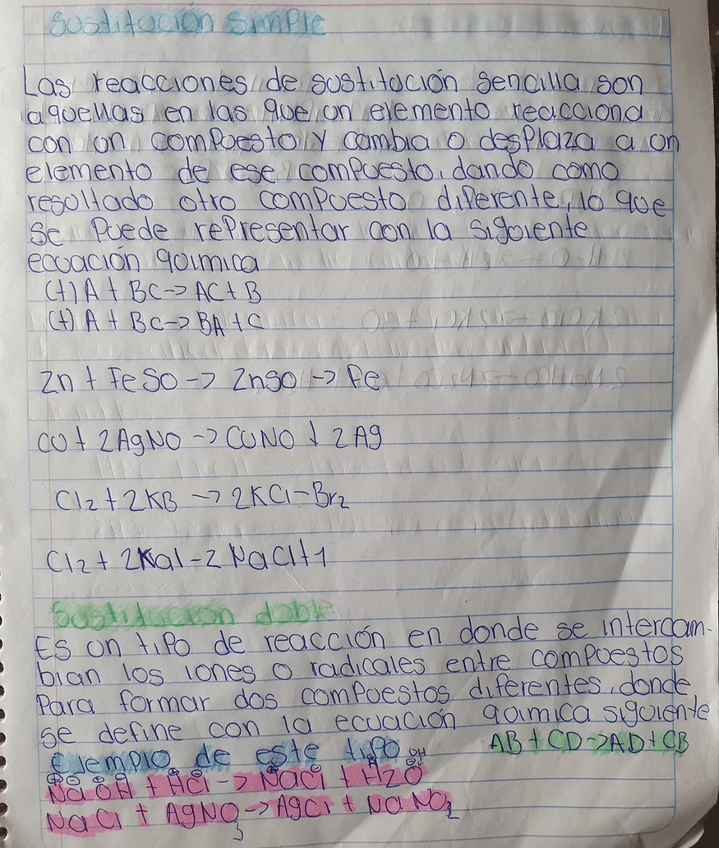 Sustitución simple
Las reacciones de sustitución sencilla son
aquellas en las que un elemento reacciona
con un compuesto y cambia o desplaza a un
elemento de ese compuesto, dando como
resultado otro compuesto diferente, lo que
se Puede rePresentar con la siguiente
ecuación química
(+) A + BC -> AC + B
(+) A + BC -> BA + C
Zn + FeSO -> ZnSO -> Fe
CU + 2AgNO -> CUNO + 2Ag
Cl2 + 2KB -> 2KCl - Br2
Cl2 + 2NaI - 2 NaCl + 1
Sustitución doble
Es un tiPo de reacción en donde se intercam-
bian los iones o radicales entre compuestos
Para formar dos compuestos diferentes, donde
se define con la ecuación química siguiente
Ejemplo de este tipo AB + CD -> AD + CB
NaOH + HCl -> NaCl + H2O
NaCl + AgNO3 -> AgCl + NaNO2